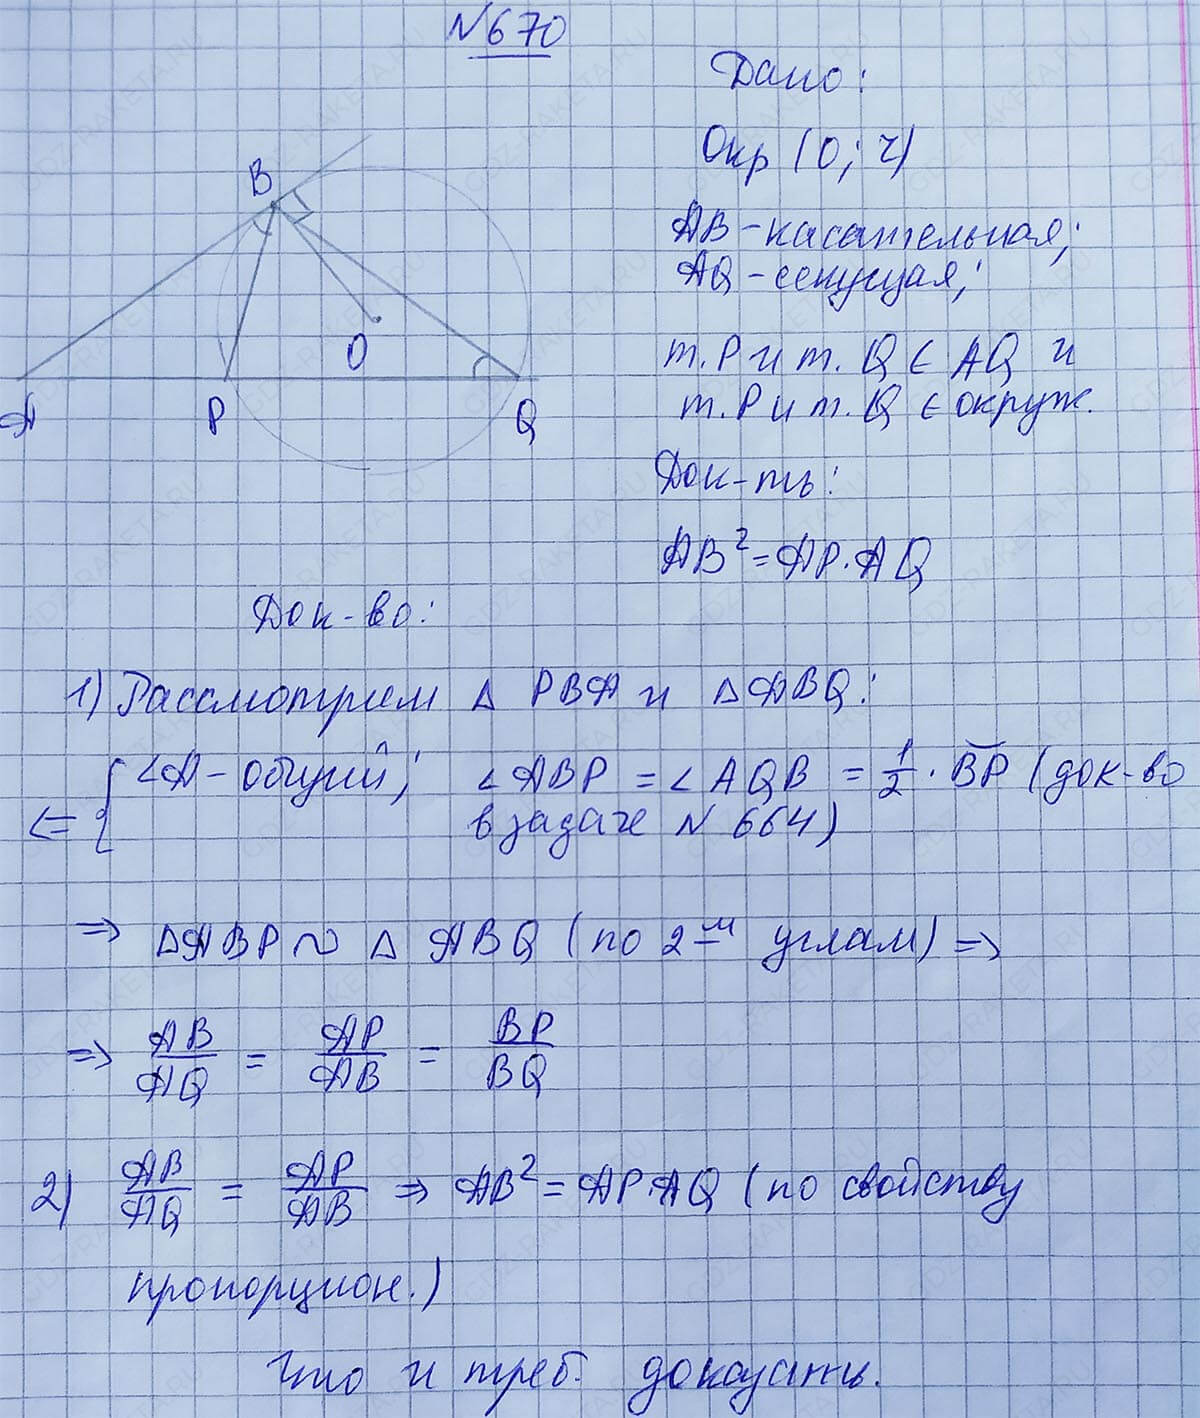 N 670
Дано:
Окр (O; r)
AB - касательная;
AQ - секущая;
т. P и т. Q ∈ AQ и
т. P и т. Q ∈ окруж.
Док-ть:
AB² = AP · AQ
B
O
A
P
Q
Док-во:
1) Рассмотрим △ PBA и △ ABQ:
<= { ∠A - общий; ∠ABP = ∠AQB = 1/2 · BP (док-во
в задаче N 664)
=> △ABP ~ △ ABQ (по 2-м углам) =>
=> AB/AQ = AP/AB = BP/BQ
2) AB/AQ = AP/AB => AB² = AP·AQ (по свойству
пропорцион.)
Что и треб. доказать.
GDZ-RAKETA.RU